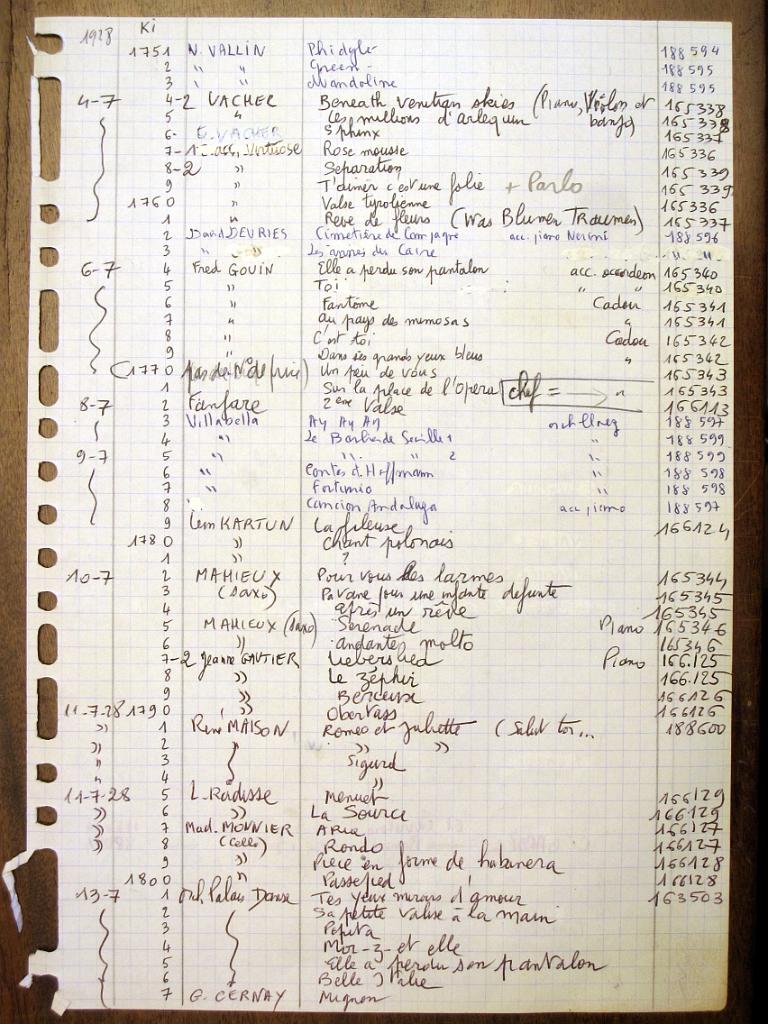 1928 Ki
1751 N. VALLIN Phidylé 188 594
2 " " Green 188 595
3 " " Mandoline 188 595
4-7 4-2 VACHER Beneath venetian skies (Piano, Violon et 165338
5 " Les millions d'arlequin banjo) 165338
6- E. VACHER Sphinx 165337
7-1 acc. Virtuose Rose mousse 165336
8-2 " Separation 165339
9 " T'aimer c'est une folie + Parlo 165 339
1760 " Valse tyrolienne 165336
1 " Reve de fleurs (Was Blumen Traumen) 165337
2 David DEVRIES Cimetière de Campagne acc. piano 188 596
3 " " Les ânes du Caire " "
6-7 4 Fred GOUIN Elle a perdu son pantalon acc. accordeon 165340
5 " Toi " " 165340
6 " Fantôme Cadou 165341
7 " au pays des mimosas " 165341
8 " C'est toi Cadou 165342
9 " Dans tes grands yeux bleus " 165342
(1770 pas de N° de ) Un peu de vous 165343
1 Sur la place de l'Opera chef = " 165343
8-7 2 Fanfare 2eme Valse 166113
3 Villabella Ay Ay Ay 188 597
4 " Le Barbier de Seville 1 " 188 599
9-7 5 " " 2 " 188 599
6 " Contes d'Hoffmann " 188 598
7 " Fortunio " 188 598
8 " Cancion Andaluza acc piano 188 597
9 Leon KARTUN La fileuse 166124
1780 " chant polonais
1 " ?
10-7 2 MAHIEUX Pour vous les larmes 165344
3 (Saxo) Pavane pour une infante defunte 165345
4 après un rêve 165345
5 MAHIEUX (Saxo) Serenade Piano 165346
6 " andantes molto 165346
7-2 Jeanne GAUTIER Liebeslied Piano 166.125
8 " Le Zéphir 166.125
9 " Berceuse 166126
11-7-28 1790 " Obertass 166126
" 1 René MAISON Romeo et Juliette (Salut toi... 188600
" 2 " "
" 3 Sigurd
" 4 "
11-7-28 5 L. Radisse Menuet 166129
" 6 " La Source 166129
" 7 Mad. MONNIER ARIA 166127
" 8 (Cello) Rondo 166127
9 " Piece en forme de habanera 166128
1800 " Passepied 166128
13-7 1 Orch Palais Danse Tes yeux mirages d'amour 163503
2 Sa petite valise à la main
3 Pepita
4 Moi-z-et elle
5 Elle a perdu son pantalon
6 Belle Italie
7 G. CERNAY Mignon